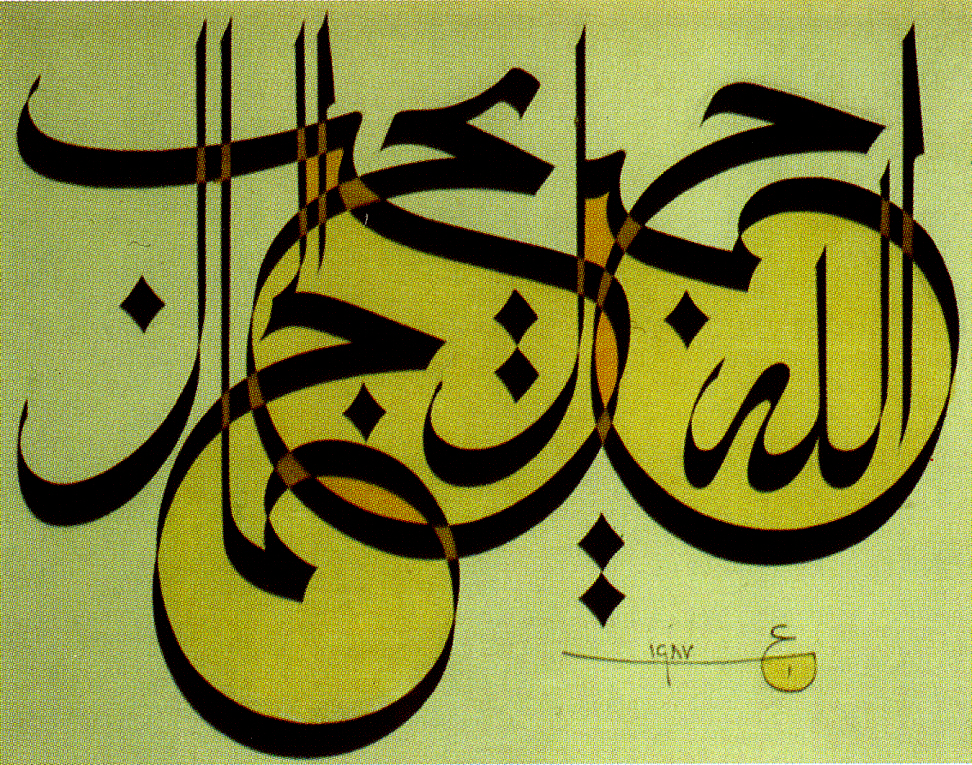 الله جميل يحب الجمال
١٩٨٧